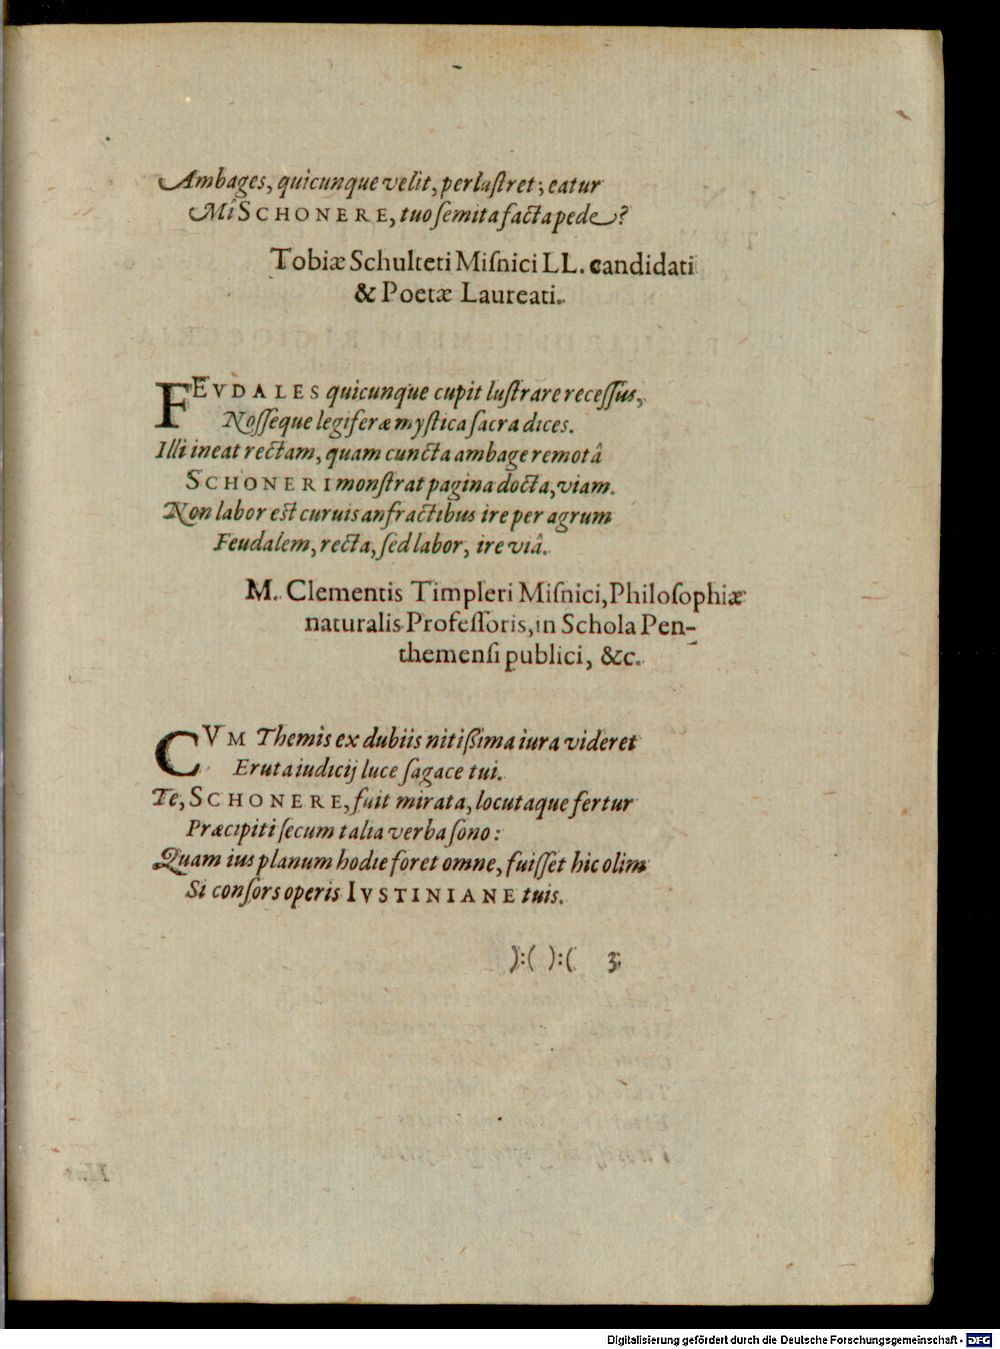 Ambages, quicunque velit, perluſtret; eatur
Mî SCHONERE, tuo ſemita facta pede?
Tobiæ Schulteti Miſnici LL. candidati
& Poetæ Laureati.
FEVDALES quicunque cupit luſtrare receſſus,
Noſſeque legiferæ myſtica ſacra dices.
Illi ineat rectam, quam cuncta ambage remotâ
SCHONERI monſtrat pagina docta, viam.
Non labor est curuis anfractibus ire per agrum
Feudalem, recta, ſed labor, ire viâ.
M. Clementis Timpleri Miſnici, Philoſophiæ
naturalis Profeſſoris, in Schola Pen-
themenſi publici, &c.
CVM Themis ex dubiis nitißima iura videret
Eruta iudicij luce ſagace tui.
Te, SCHONERE, fuit mirata, locutaque fertur
Præcipiti ſecum talia verba ſono:
Quam ius planum hodie foret omne, fuiſſet hic olim
Si conſors operis IVSTINIANE tuis.
):( ):( 3
Digitalisierung gefördert durch die Deutsche Forschungsgemeinschaft - DFG